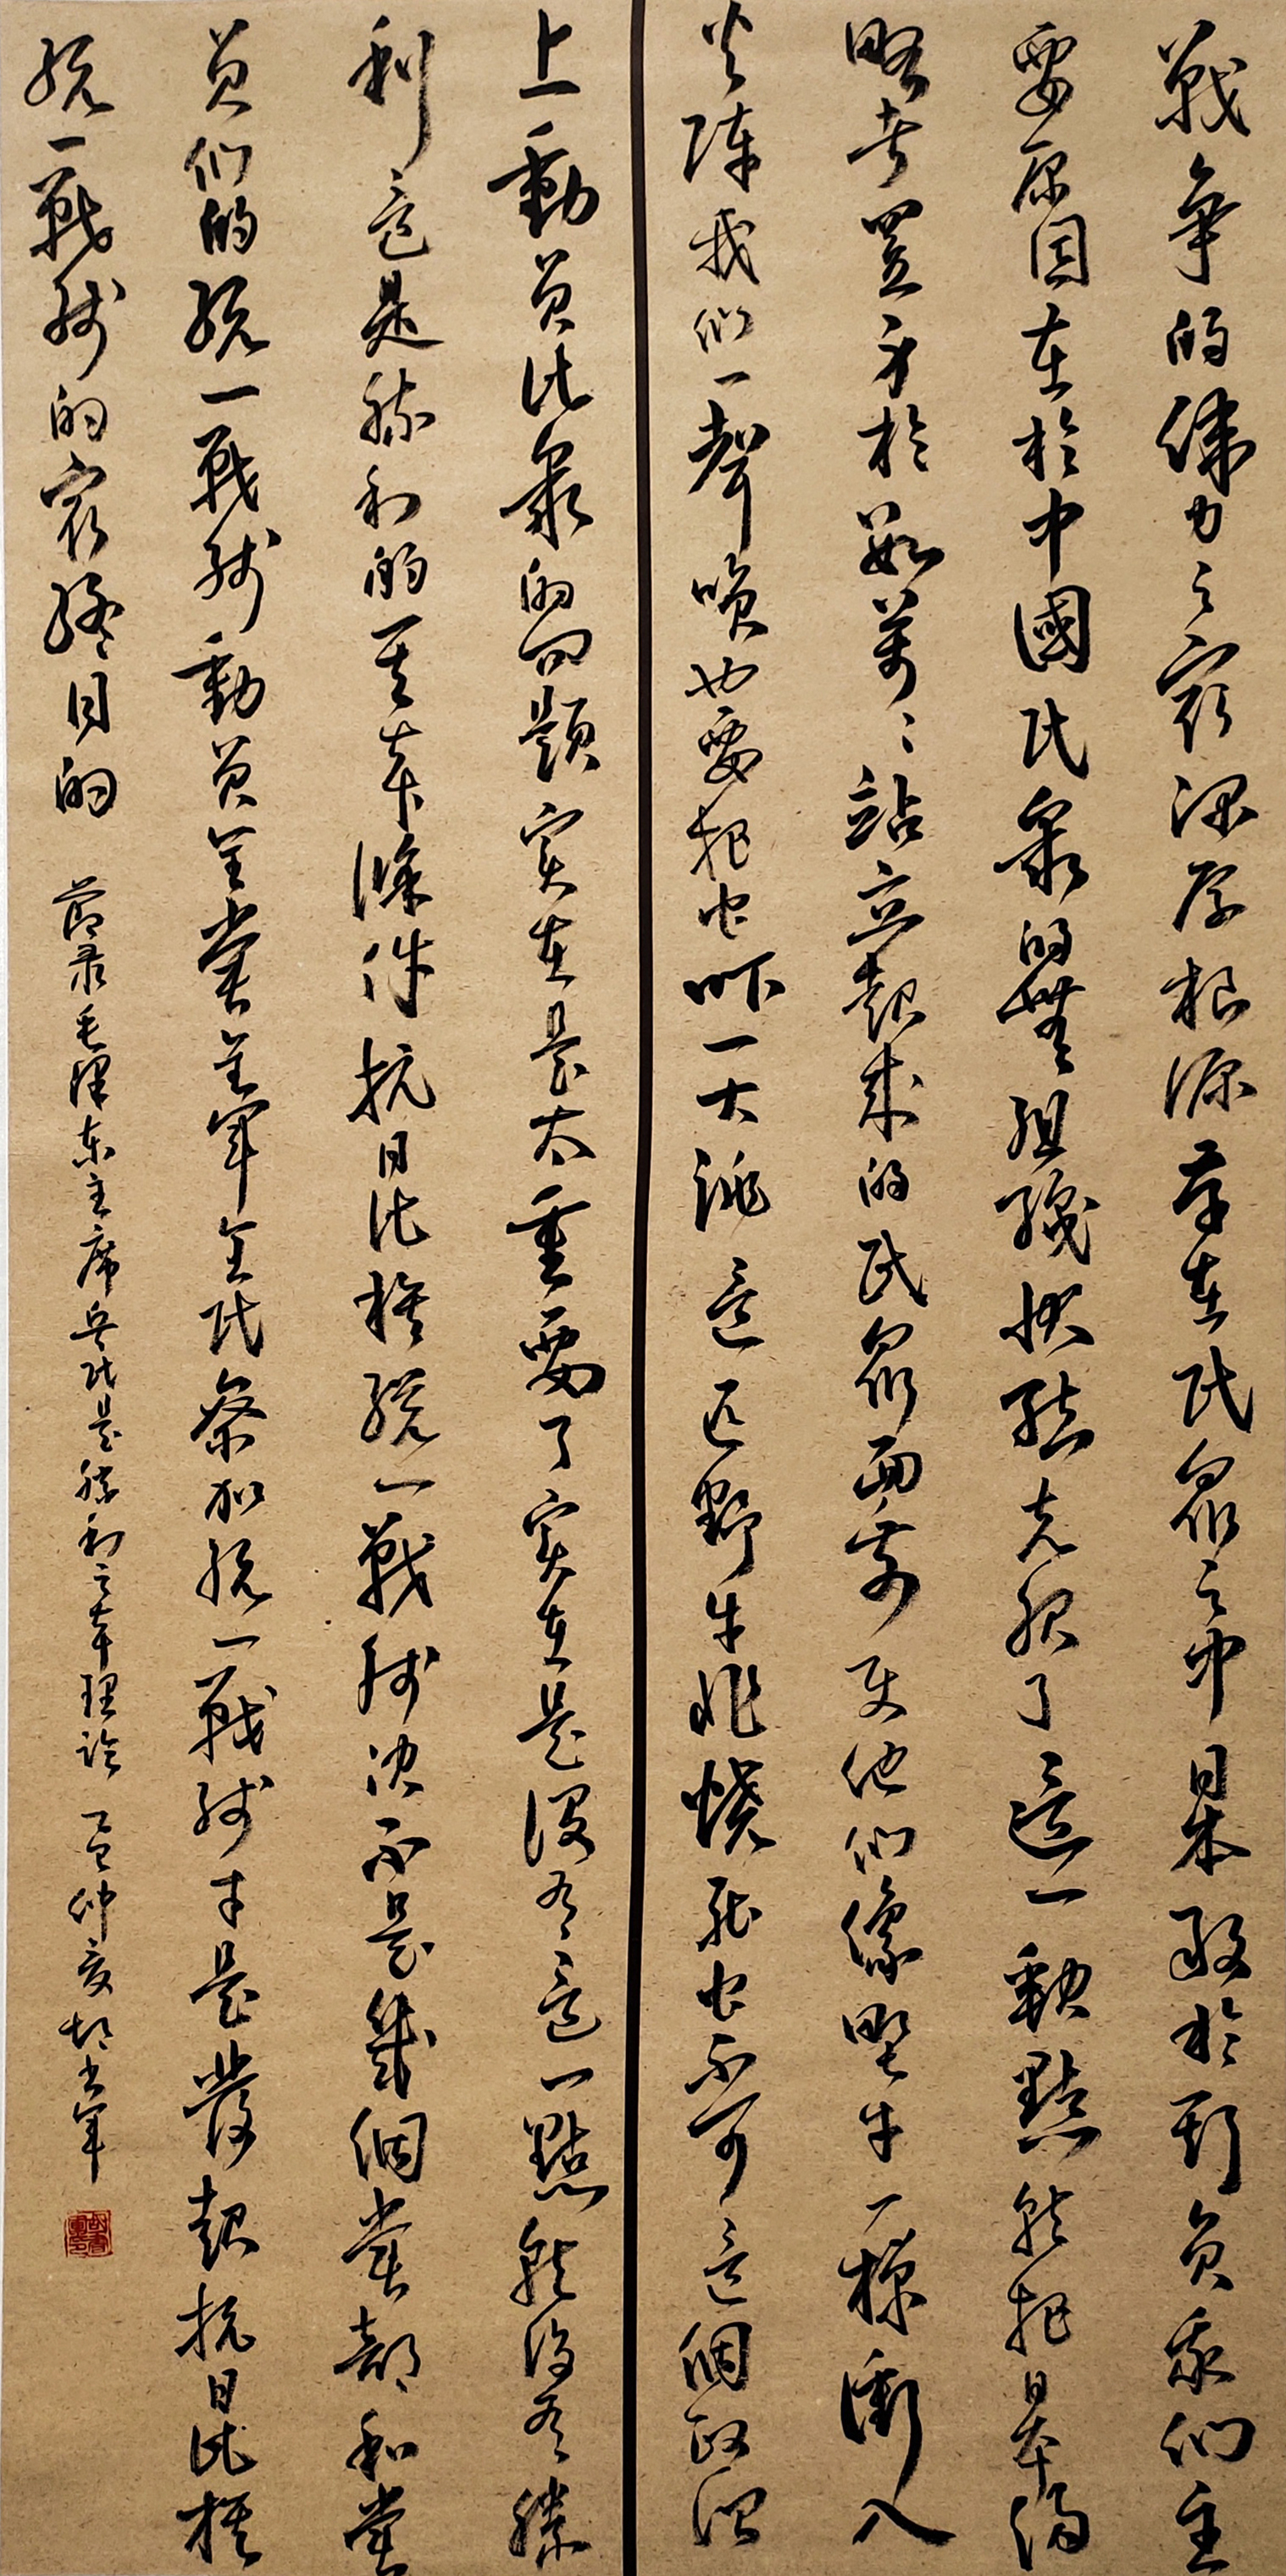 戰爭的偉力之最深厚根源存在民衆之中日本敢於欺負我們主
要原因在於中國民衆的無組織狀態克服了這一缺點就把日本侵
略者置身於數萬萬站立起來的民衆面前使他們像野牛一樣衝入
火陣我們一聲喚也要把它吓一大跳這匹野牛非燒死它不可這個政治
上動員民衆的问題實在是太重要了實在是沒有這一點就沒有勝
利這是勝利的基本條件抗日民族統一戰線决不是幾個黨部和黨
員们的統一戰線動員全黨全軍全民參加統一戰線才是發起抗日民族
統一戰线的最終目的
節录毛澤东主席兵民是勝利之本理论 乙巳仲夏 胡书軍